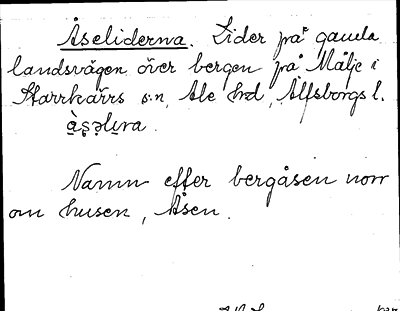 Åseliderna. Lider på gamla
landsvägen över bergen på Målje i
Starrkärrs s:n, Ale hd, Älfsborgs l.
Namn efter bergåsen norr
om husen, Åsen.